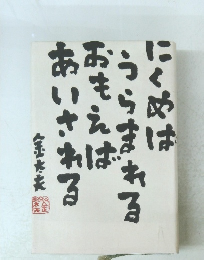 にくめば
うらまれる
おもえば
あいされる